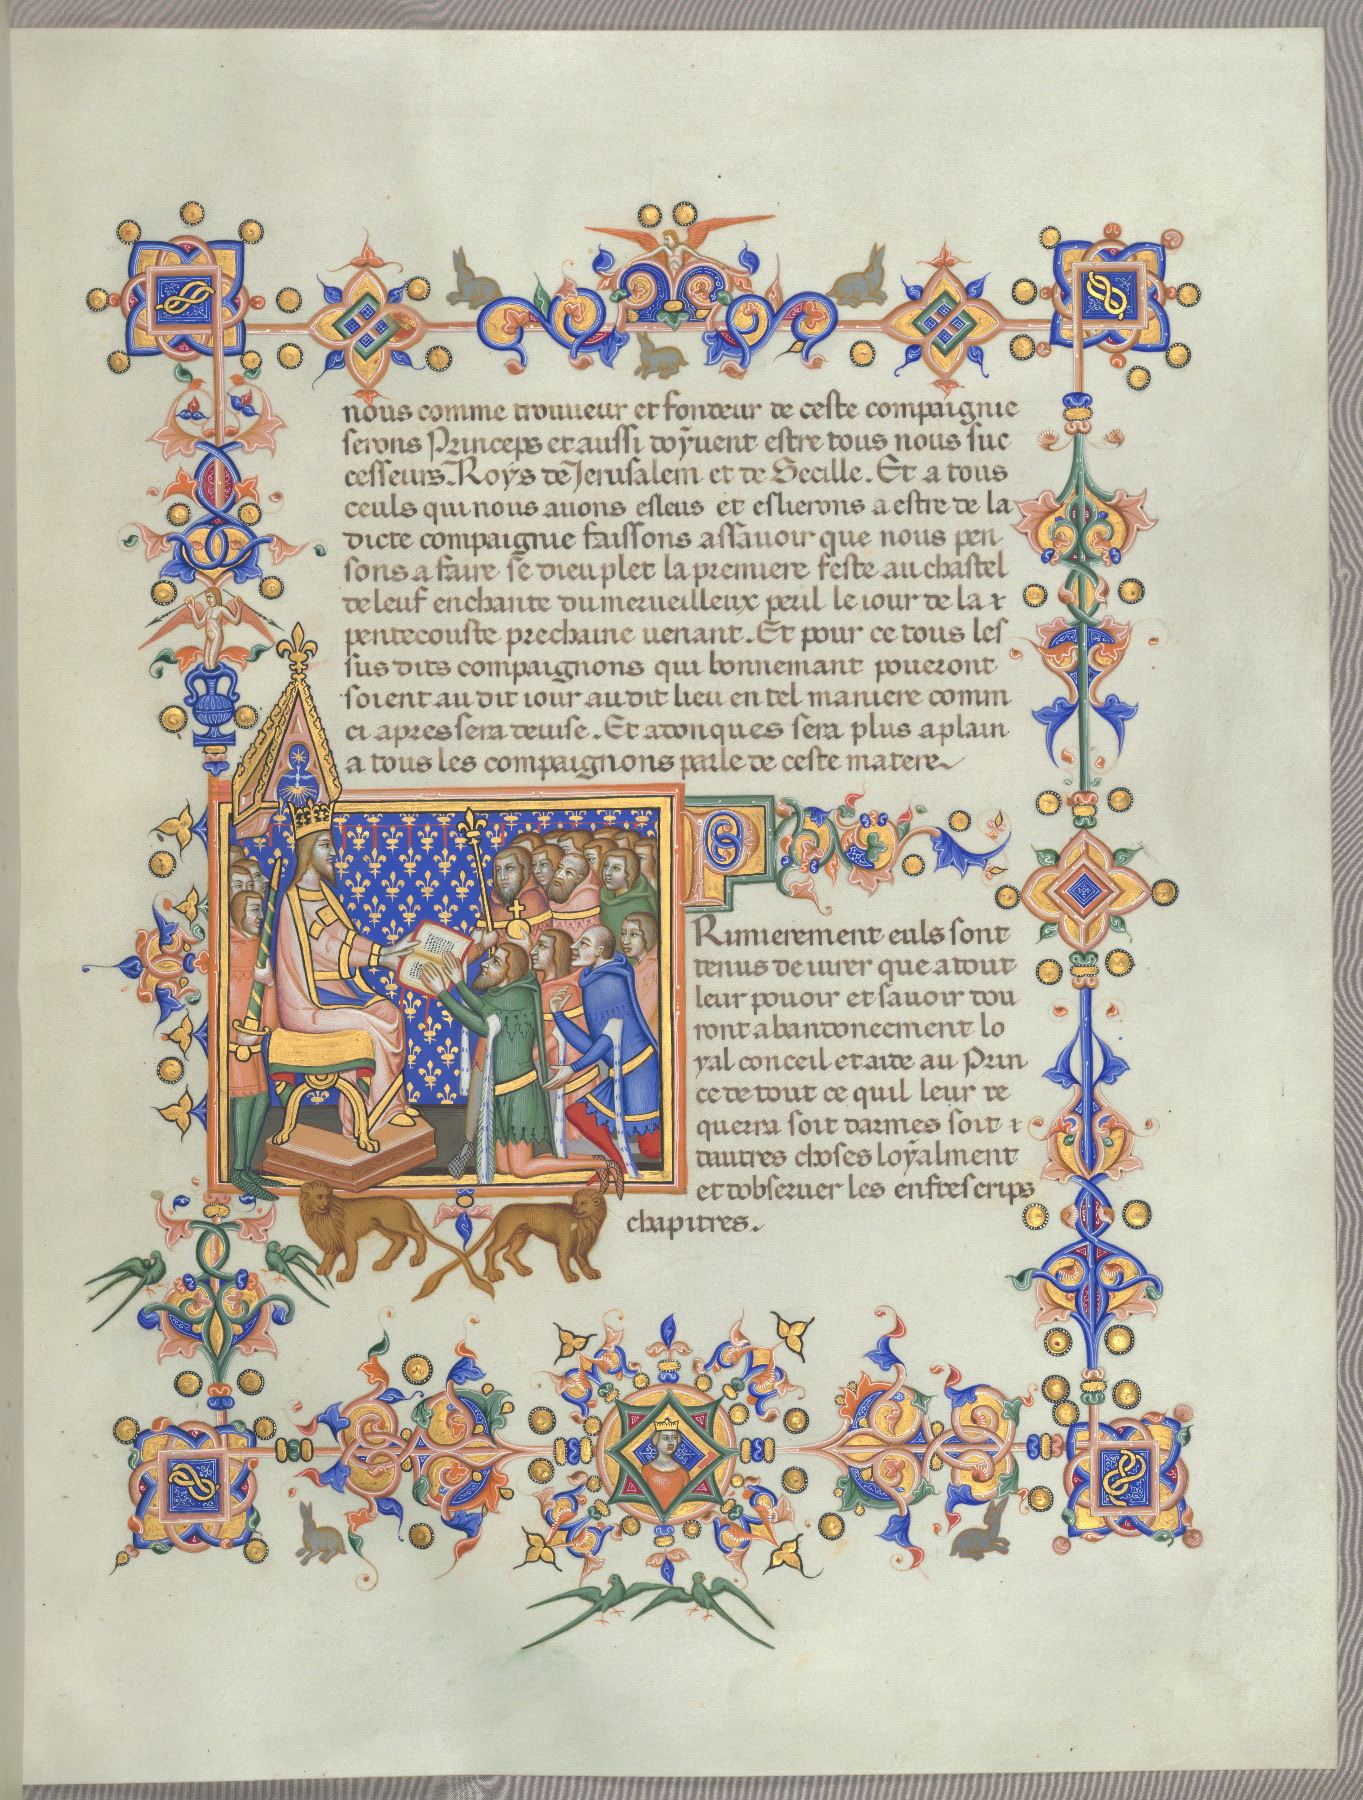 nous comme trouueur et fondeur de ceste compaignie
serons Princeps et aussi doyuent estre tous nous suc
cesseurs Roys de Jerusalem et de Secille. Et a tous
ceuls qui nous auons esleus et eslierons a estre de la
dicte compaignie faissons assauoir que nous pen
sons a faire se dieu plet la premiere feste au chastel
de leuf enchante du merueilleux peril le iour de la
pentecouste prechaine uenant. Et pour ce tous les
sus dits compaignons qui bonnemant poueront
soient au dit iour au dit lieu en tel maniere comm
ci apres sera deuise. Et adonques sera plus aplain
a tous les compaignons parle de ceste matere
P
Rimierement euls sont
tenus de iurer que a tout
leur pouoir et sauoir dou
ront abandoneement lo
yal conceil et aide au Prin
ce de tout ce quil leur re
querra soit darmes soit
dautres choses loyalment
et dobseruer les enfrescrips
chapitres.